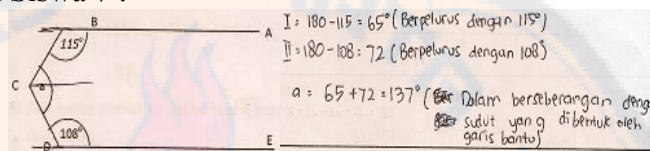 B
A
115°
C
a
108°
D
E
I = 180 - 115 = 65° (Berpelurus dengan 115°)
II = 180 - 108 = 72 (Berpelurus dengan 108°)
a = 65 + 72 = 137° (Dalam berseberangan deng
sudut yang dibentuk oleh
garis bantu)